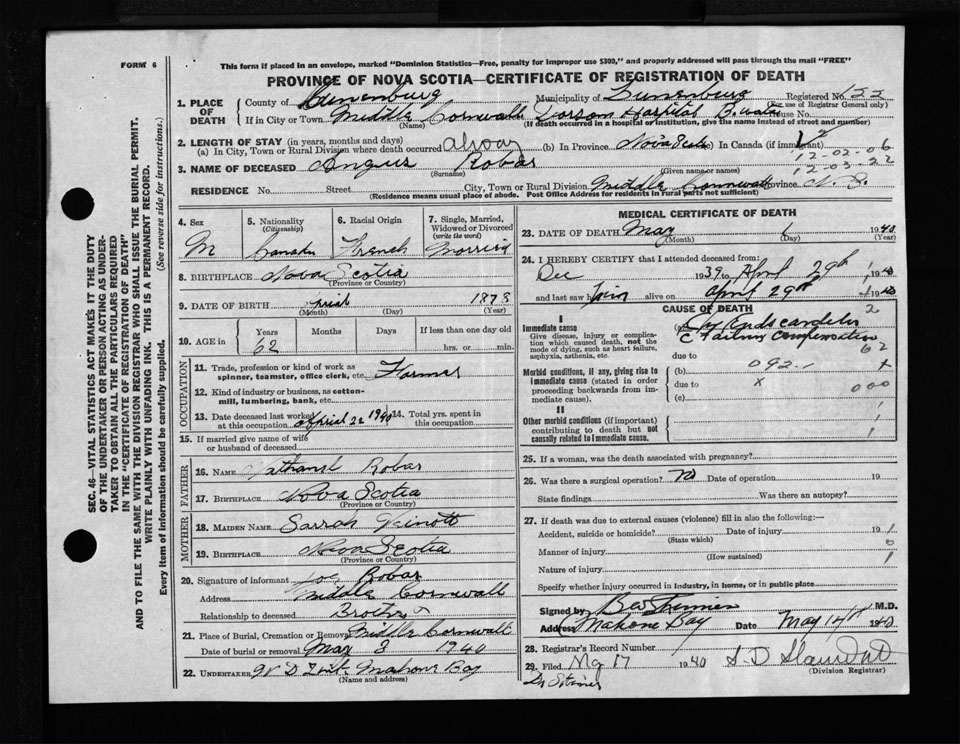 FORM 6
This form if placed in an envelope, marked "Dominion Statistics—Free, penalty for improper use $300," and properly addressed will pass through the mail "FREE"
PROVINCE OF NOVA SCOTIA—CERTIFICATE OF REGISTRATION OF DEATH
1. PLACE OF DEATH
County of Lunenburg Municipality of Lunenburg Registered No. 122
(For use of Registrar General only)
If in City or Town Middle Cornwall Dorson Hospital House No.
(Name) (If death occurred in a hospital or institution, give the name instead of street and number)
2. LENGTH OF STAY (in years, months and days)
(a) In City, Town or Rural Division where death occurred alway (b) In Province Nova Scotia In Canada (if immigrant)
12-02-06
3. NAME OF DECEASED Angus Robar
(Surname) (Given name or names)
12-03-22
RESIDENCE No. Street City, Town or Rural Division Middle Cornwall Province N.S.
Residence means usual place of abode. Post Office Address for residents in rural parts not sufficient)
4. Sex M
5. Nationality (Citizenship) Canadn
6. Racial Origin French
7. Single, Married, Widowed or Divorced (write the word)
8. BIRTHPLACE Nova Scotia
(Province or Country)
9. DATE OF BIRTH 1878
(Month) (Day) (Year)
10. AGE Years 62 Months Days If less than one day old hrs. or min.
OCCUPATION
11. Trade, profession or kind of work as spinner, teamster, office clerk, etc. Farmer
12. Kind of industry or business, as cotton-mill, lumbering, bank, etc.
13. Date deceased last worked at this occupation April 22 1940 14. Total yrs. spent in this occupation
15. If married give name of wife or husband of deceased
FATHER
16. NAME Nathanel Robar
17. BIRTHPLACE Nova Scotia
(Province or Country)
MOTHER
18. MAIDEN NAME Sarrah
19. BIRTHPLACE Nova Scotia
(Province or Country)
20. Signature of informant Joe Robar
Address Middle Cornwall
Relationship to deceased Brother
21. Place of Burial, Cremation or Removal Middle Cornwall
Date of burial or removal May 3 1940
22. UNDERTAKER Mahone Bay
(Name and address)
MEDICAL CERTIFICATE OF DEATH
23. DATE OF DEATH May 1 1940
(Month) (Day) (Year)
24. I HEREBY CERTIFY that I attended deceased from:
Dec 1939 to April 29th 1940
and last saw him alive on April 29th 1940
CAUSE OF DEATH
2
I
Immediate cause
Give disease, injury or complication which caused death, not the mode of dying, such as heart failure, asphyxia, asthenia, etc.
(a) Failing Compensation
due to
62
Morbid conditions, if any, giving rise to immediate cause (stated in order proceeding backwards from immediate cause).
(b) 092.1 x
due to x 000
(c)
II
Other morbid conditions (if important) contributing to death but not causally related to immediate cause.
1
1
25. If a woman, was the death associated with pregnancy?
26. Was there a surgical operation? no Date of operation 19
State findings Was there an autopsy?
27. If death was due to external causes (violence) fill in also the following:—
Accident, suicide or homicide? Date of injury 19 1
(State which) 0
Manner of injury
(How sustained) 1
Nature of injury
Specify whether injury occurred in industry, in home, or in public place
Signed by M.D.
Address Mahone Bay Date May 14th 1940
28. Registrar's Record Number
29. Filed May 17 1940
(Division Registrar)
SEC. 46—VITAL STATISTICS ACT MAKES IT THE DUTY OF THE UNDERTAKER OR PERSON ACTING AS UNDERTAKER TO OBTAIN ALL THE PARTICULARS REQUIRED IN THE "CERTIFICATE OF REGISTRATION OF DEATH"
AND TO FILE THE SAME WITH THE DIVISION REGISTRAR WHO SHALL ISSUE THE BURIAL PERMIT.
WRITE PLAINLY WITH UNFADING INK. THIS IS A PERMANENT RECORD.
Every item of information should be carefully supplied. (See reverse side for instructions.)